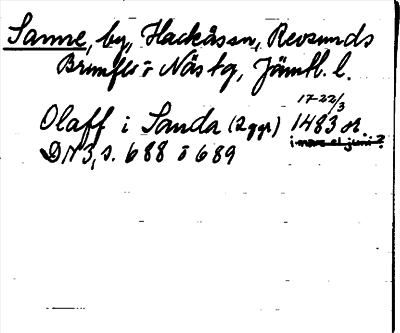 Sanne, by, Hackåssn, Revsunds
Brunflo o Näs tg, Jämtl. l.
17-22/3
Olaff i Sanda (2 ggr) 1483 or.
i mars el juni?
DN 3, s. 688 o 689